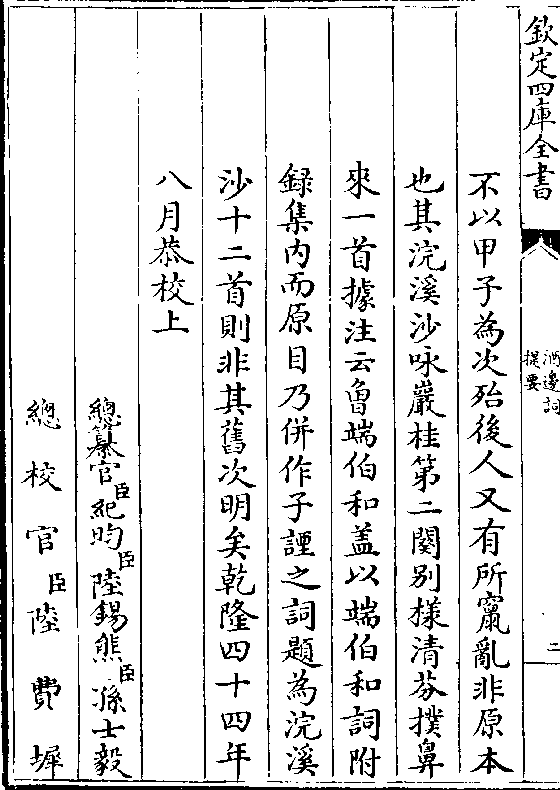 欽定四庫全書
酒邊詞
提要
二
不以甲子為次殆後人又有所竄亂非原本
也其浣溪沙咏巖桂第二闋别樣清芬撲鼻
來一首據注云曾端伯和盖以端伯和詞附
録集内而原目乃併作子諲之詞題為浣溪
沙十二首則非其舊次明矣乾隆四十四年
八月恭校上
總纂官臣紀昀臣陸錫熊臣孫士毅
總校官臣陸費墀